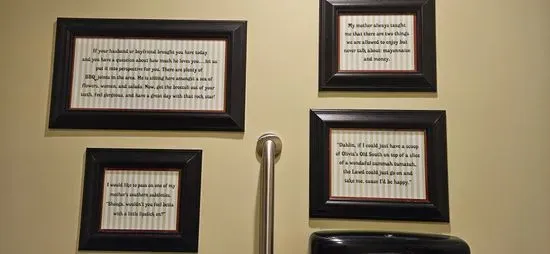 If your husband or boyfriend brought you here today
and you have a question about how much he loves you....let us
put it into perspective for you. There are plenty of
BBQ joints in the area. He is sitting here amongst a sea of
flowers, women, and salads. Now, get the broccoli out of your
teeth, feel gorgeous, and have a great day with that rock star!
My mother always taught
me that there are two things
we are allowed to enjoy but
never talk about: mayonnaise
and money.
I would like to pass on one of my
mother's southern subtleties.
"Shough, wouldn't you feel betta
with a little lipstick on?"
"Dahlin, if I could just have a scoop
of Olivia's Old South on top of a slice
of a wonderful summah tamatah,
the Lawd could just go on and
take me, cause I'd be happy."